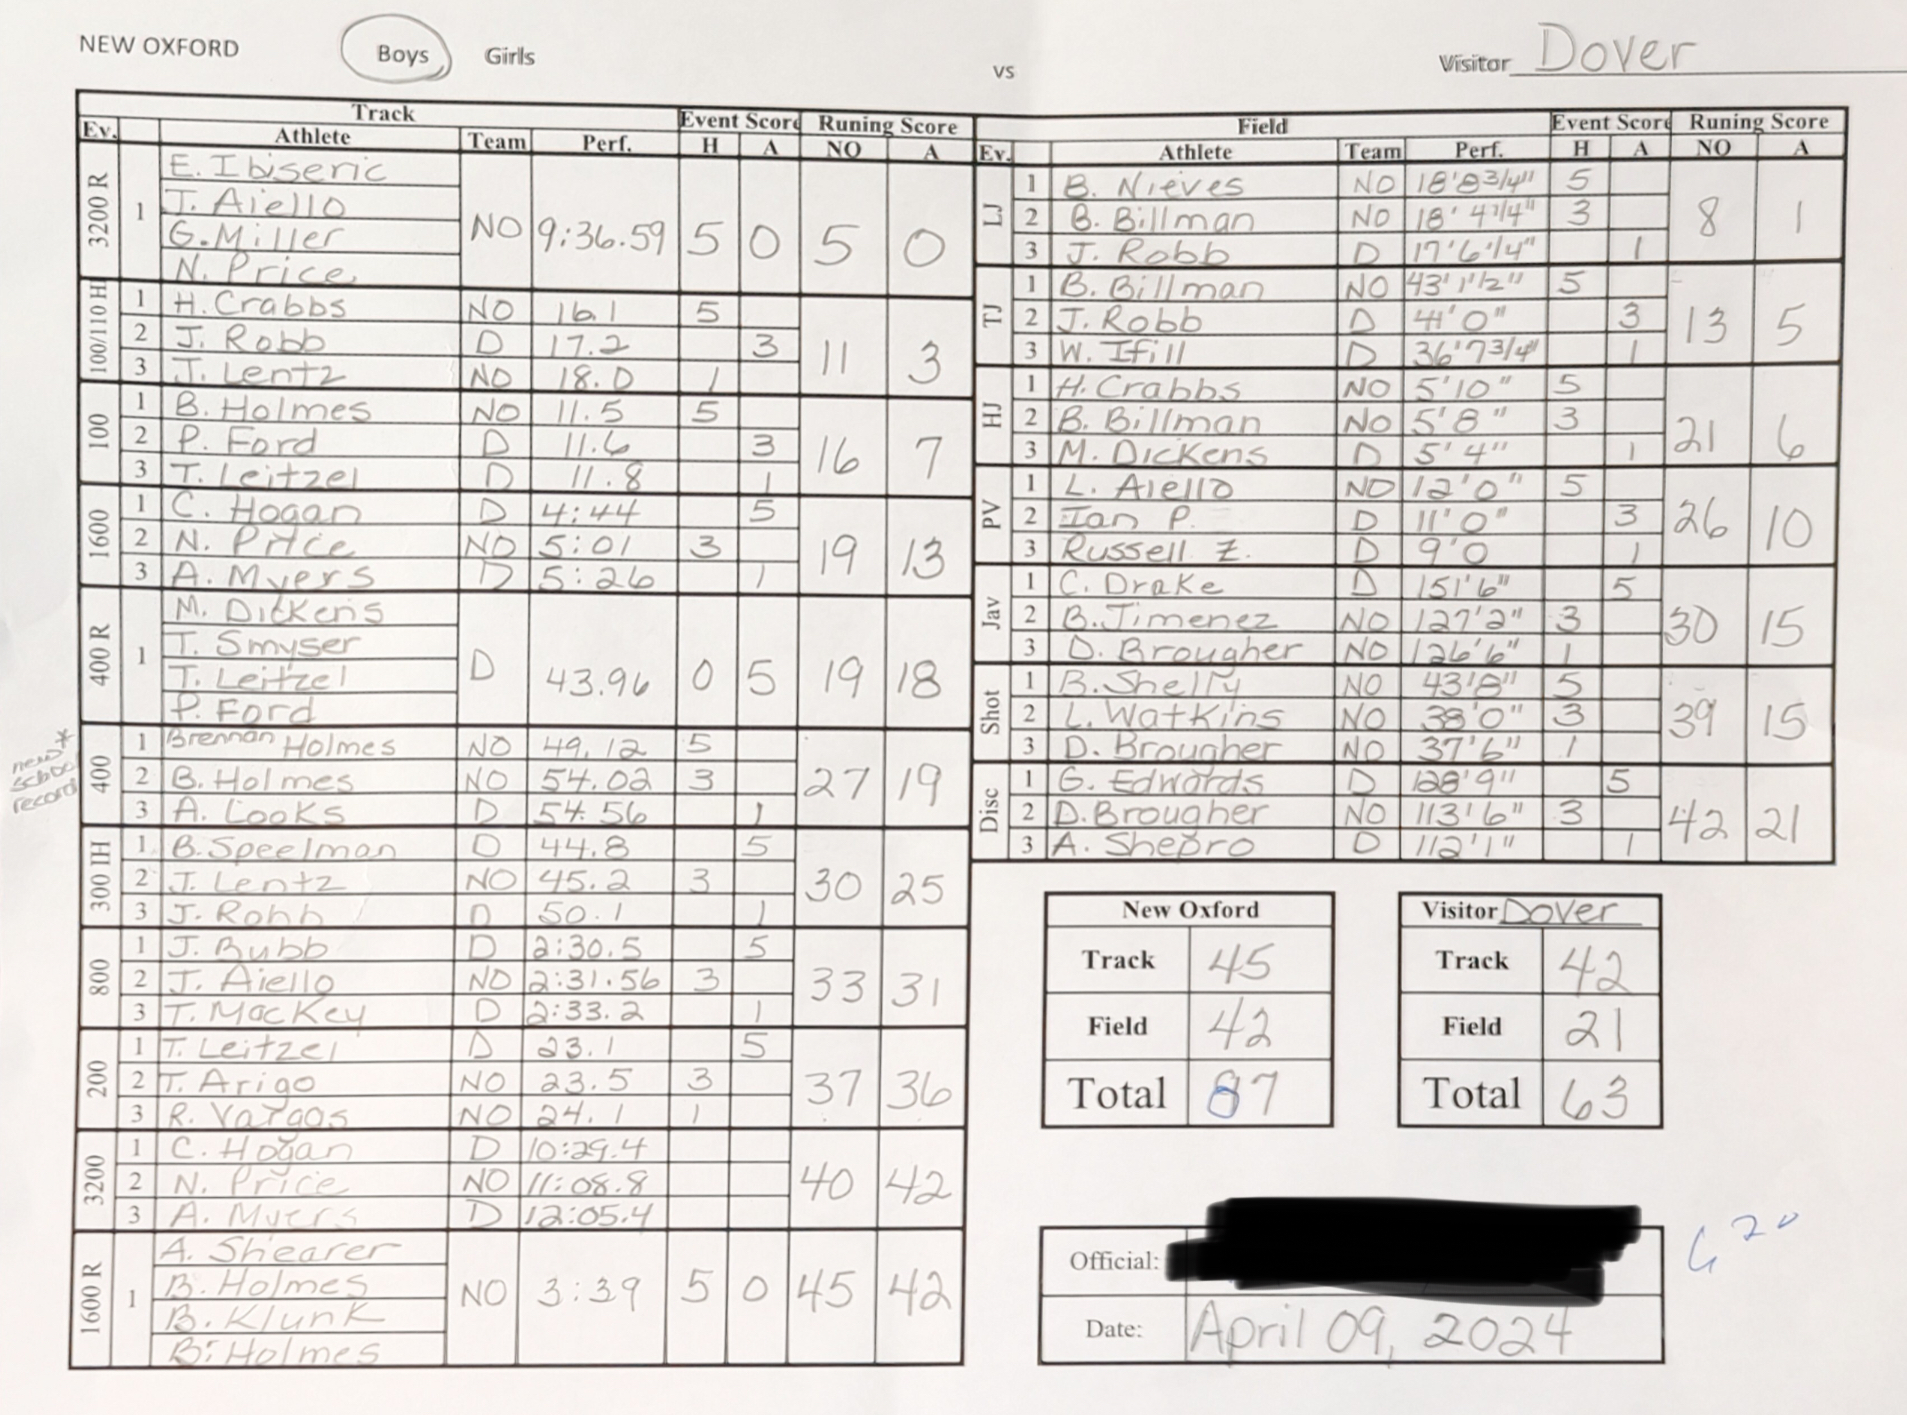 NEW OXFORD Boys Girls vs Visitor Dover
Track Event Score Runing Score
Ev. Athlete Team Perf. H A NO A
3200 R 1 E. Ibiseric NO 9:36.59 5 0 5 0
J. Aiello
G. Miller
N. Price
100/110 H 1 H. Crabbs NO 16.1 5 11 3
2 J. Robb D 17.2 3
3 J. Lentz NO 18.0 1
100 1 B. Holmes NO 11.5 5 16 7
2 P. Ford D 11.6 3
3 T. Leitzel D 11.8 1
1600 1 C. Hogan D 4:44 5 19 13
2 N. Price NO 5:01 3
3 A. Myers D 5:26 1
400 R 1 M. Dickens D 43.96 0 5 19 18
T. Smyser
T. Leitzel
P. Ford
new * school record
400 1 Brennan Holmes NO 49.12 5 27 19
2 B. Holmes NO 54.02 3
3 A. Looks D 54.56 1
300 IH 1 B. Speelman D 44.8 5 30 25
2 J. Lentz NO 45.2 3
3 J. Robb D 50.1 1
800 1 J. Bubb D 2:30.5 5 33 31
2 J. Aiello NO 2:31.56 3
3 T. Mackey D 2:33.2 1
200 1 T. Leitzel D 23.1 5 37 36
2 T. Arigo NO 23.5 3
3 R. Vargos NO 24.1 1
3200 1 C. Hogan D 10:29.4 40 42
2 N. Price NO 11:08.8
3 A. Myers D 12:05.4
1600 R 1 A. Shearer NO 3:39 5 0 45 42
B. Holmes
B. Klunk
B. Holmes
Field Event Score Runing Score
Ev. Athlete Team Perf. H A NO A
LJ 1 B. Nieves NO 18'8 3/4" 5 8 1
2 B. Billman NO 18' 4 1/4" 3
3 J. Robb D 17'6 1/4" 1
TJ 1 B. Billman NO 43' 1 1/2" 5 13 5
2 J. Robb D 41'0" 3
3 W. Ifill D 36'7 3/4" 1
HJ 1 H. Crabbs NO 5'10" 5 21 6
2 B. Billman NO 5'8" 3
3 M. Dickens D 5'4" 1
PV 1 L. Aiello NO 12'0" 5 26 10
2 Ian P. D 11'0" 3
3 Russell Z. D 9'0 1
Jav 1 C. Drake D 151'6" 5 30 15
2 B. Jimenez NO 127'2" 3
3 D. Brougher NO 126'6" 1
Shot 1 B. Shelly NO 43'8" 5 39 15
2 L. Watkins NO 38'0" 3
3 D. Brougher NO 37'6" 1
Disc 1 G. Edwards D 128'9" 5 42 21
2 D. Brougher NO 113'6" 3
3 A. Shepro D 112'1" 1
New Oxford
Track 45
Field 42
Total 87
Visitor Dover
Track 42
Field 21
Total 63
Official:
Date: April 09, 2024